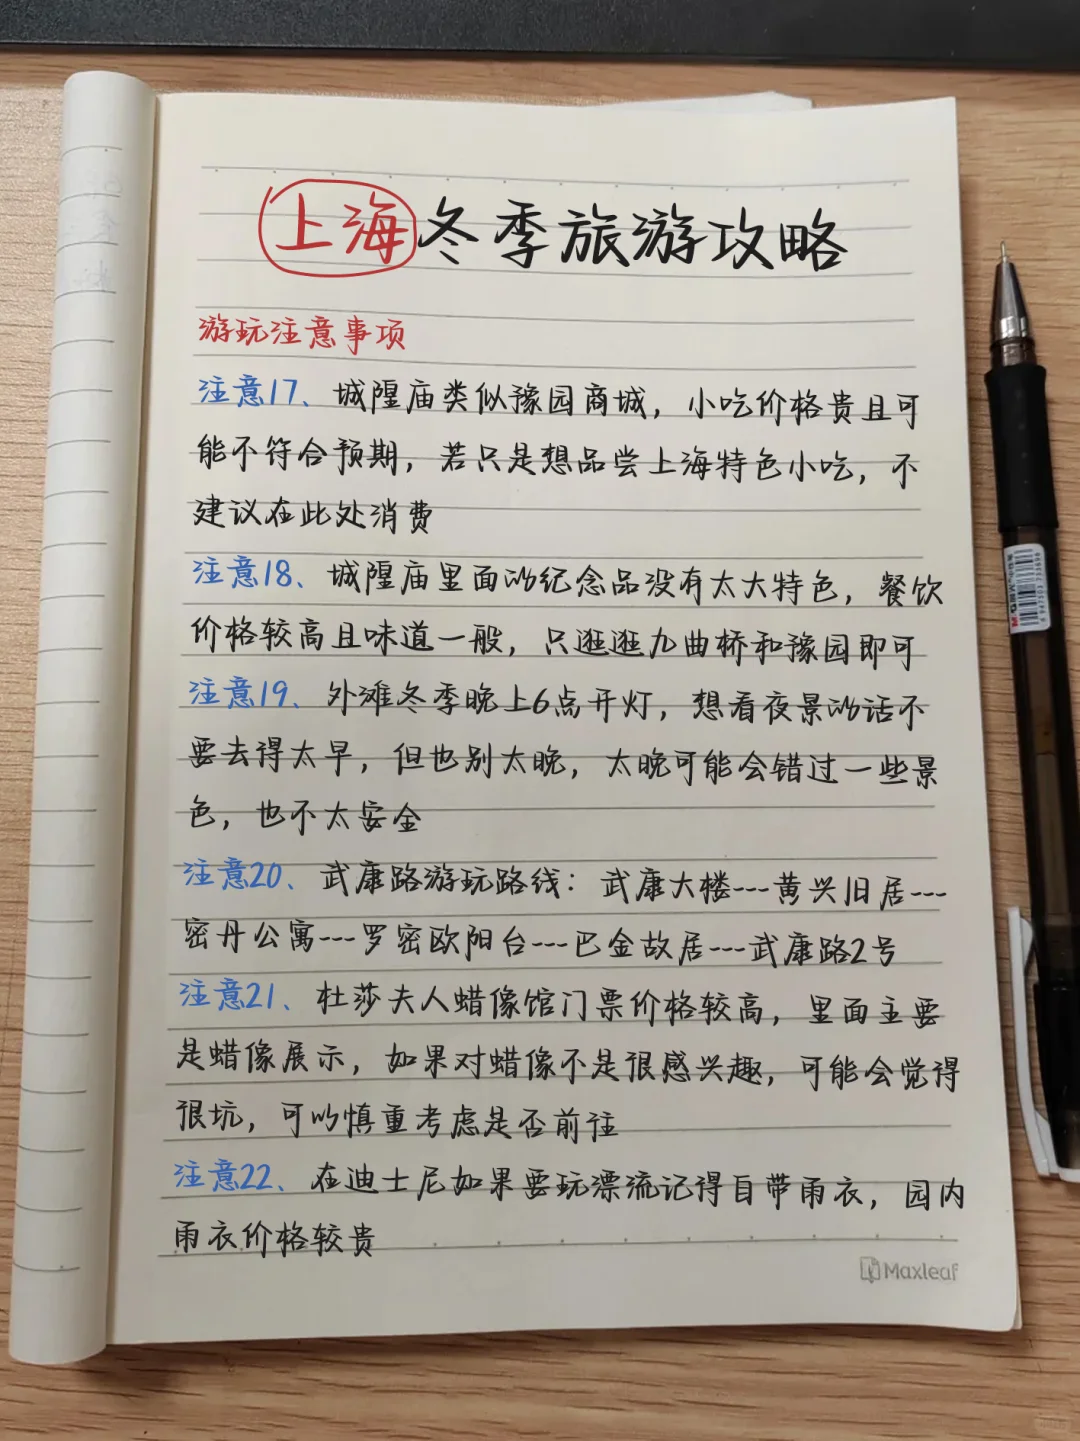 上海冬季旅游攻略
游玩注意事项
注意17、城隍庙类似豫园商城，小吃价格贵且可
能不符合预期，若只是想品尝上海特色小吃，不
建议在此处消费
注意18、城隍庙里面的纪念品没有太大特色，餐饮
价格较高且味道一般，只逛逛九曲桥和豫园即可
注意19、外滩冬季晚上6点开灯，想看夜景的话不
要去得太早，但也别太晚，太晚可能会错过一些景
色，也不太安全
注意20、武康路游玩路线：武康大楼---黄兴旧居---
密丹公寓---罗密欧阳台---巴金故居---武康路2号
注意21、杜莎夫人蜡像馆门票价格较高，里面主要
是蜡像展示，如果对蜡像不是很感兴趣，可能会觉得
很坑，可以慎重考虑是否前往
注意22、在迪士尼如果要玩漂流记得自带雨衣，园内
雨衣价格较贵
Maxleaf